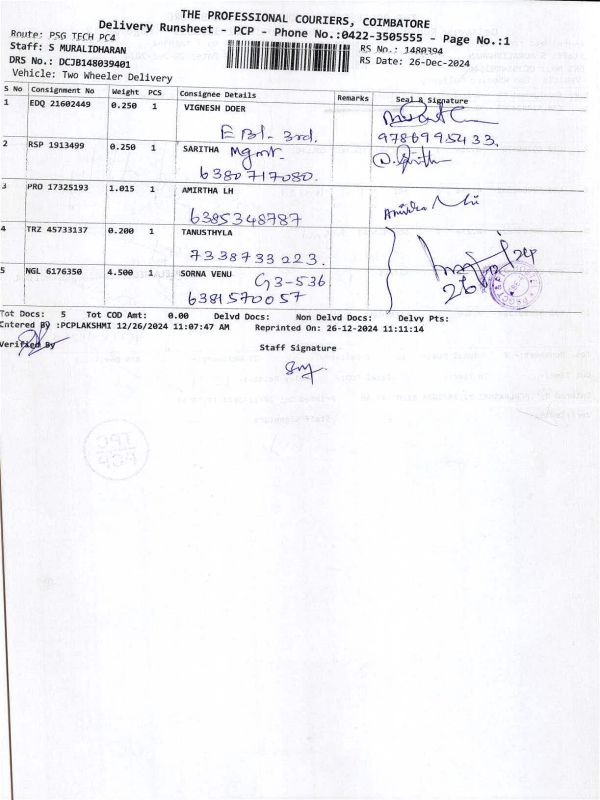 THE PROFESSIONAL COURIERS, COIMBATORE
Delivery Runsheet - PCP - Phone No.:0422-3505555 - Page No.:1
Route: PSG TECH PC4
Staff: S MURALIDHARAN RS No.: 1480394
DRS No.: DCJB148039401 RS Date: 26-Dec-2024
Vehicle: Two Wheeler Delivery
S No Consignment No Weight PCS Consignee Details Remarks Seal & Signature
1 EDQ 21602449 0.250 1 VIGNESH DOER
3rd. 9786995433.
2 RSP 1913499 0.250 1 SARITHA Mgmt.
6380717080.
3 PRO 17325193 1.015 1 AMIRTHA LH
6385348787
4 TRZ 45733137 0.200 1 TANUSTHYLA
7338733223.
5 NGL 6176350 4.500 1 SORNA VENU G3-536
6381570057
Tot Docs: 5 Tot COD Amt: 0.00 Delvd Docs: Non Delvd Docs: Delvy Pts:
Entered By :PCPLAKSHMI 12/26/2024 11:07:47 AM Reprinted On: 26-12-2024 11:11:14
Verified By
Staff Signature